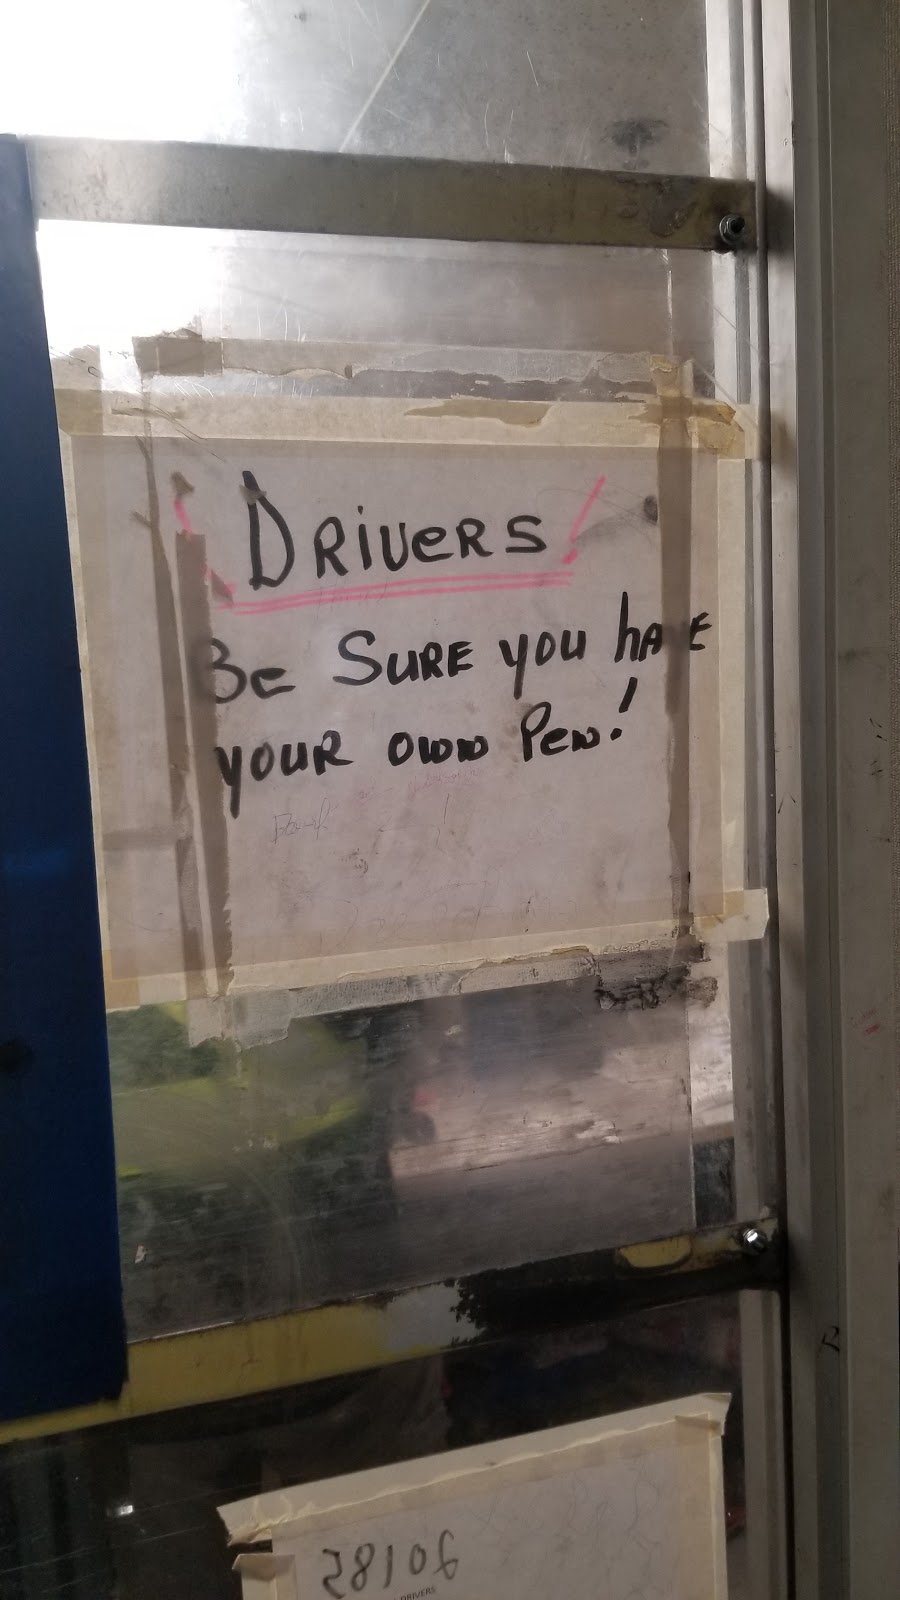 DRIVERS
BE SURE YOU HAVE
YOUR OWN PEN!
58106
DRIVERS